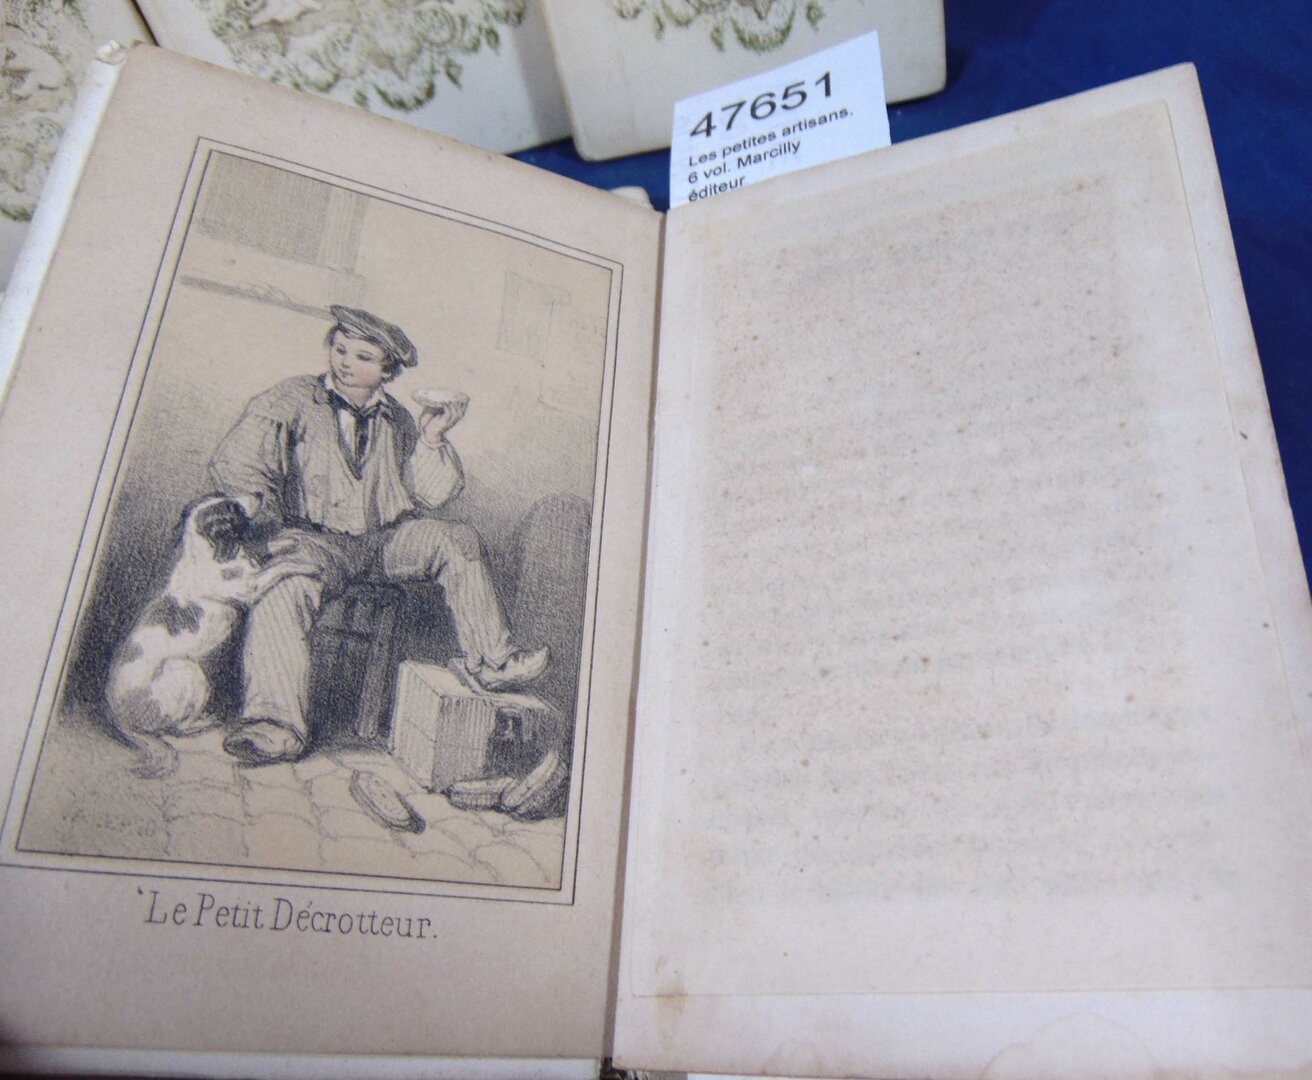 47651
Les petites artisans.
6 vol. Marcilly
éditeur
Le Petit Décrotteur.